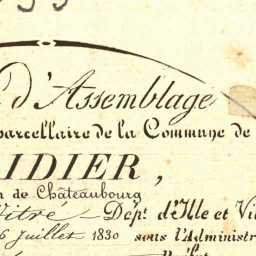 d'Assemblage
parcellaire de la Commune de
IDIER,
n de Châteaubourg
Vitré Dépt. d'Ille et Vi
6 juillet 1830 sous l'Administr